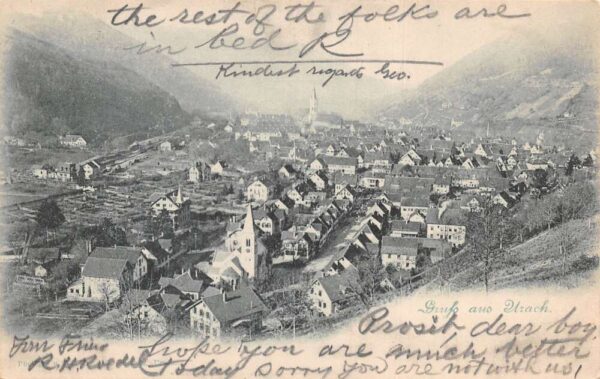 the rest of the folks are
in bed R
Kindest regards Geo.
Gruß aus Urach.
Prosit dear boy.
hope you are much better
R.H. Roeder Today sorry you are not with us,